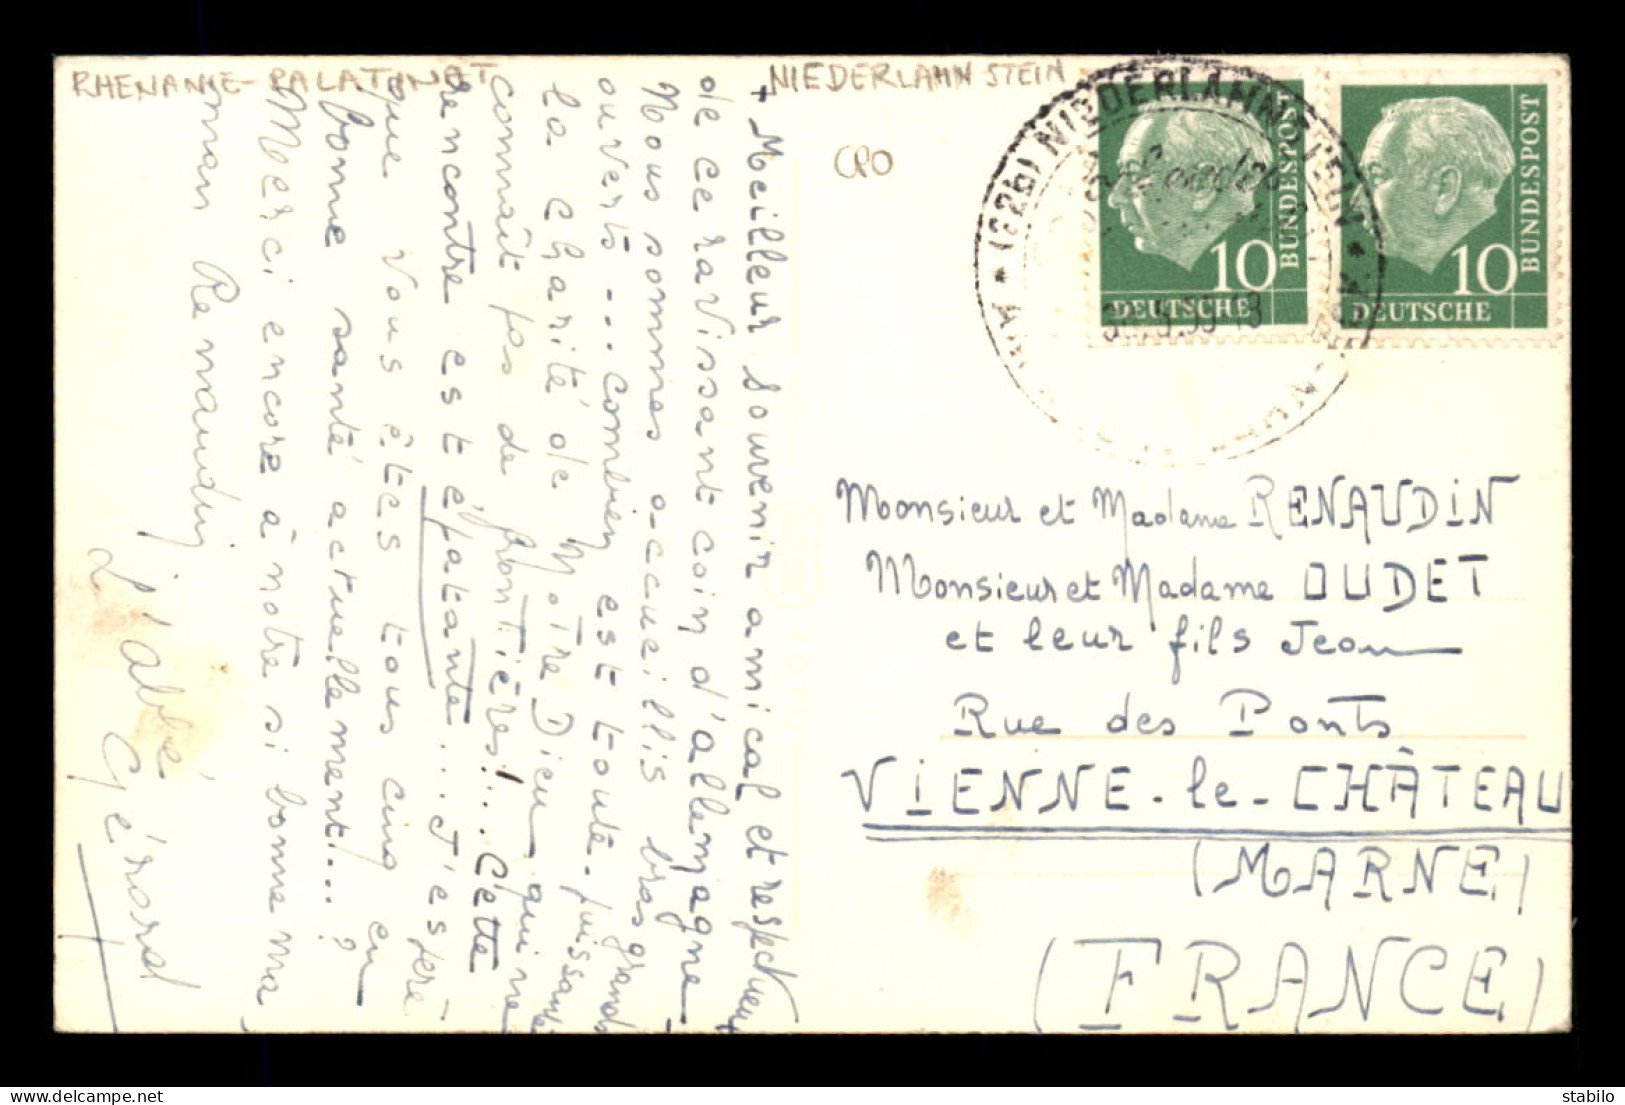 RHENANIE-PALATINAT
NIEDERLAHNSTEIN
CPO
(22b) NIEDERLAHNSTEIN
10
BUNDESPOST
DEUTSCHE
10
BUNDESPOST
DEUTSCHE
+ Meilleur souvenir amical et respectueux
de ce ravissant coin d'allemagne
Nous sommes accueillis bras grands
ouverts... combien est toute-puissante
la charité de Notre Dieu qui ne
connaît pas de frontières!.. Cette
rencontre est épatante... J'espère
que vous êtes tous cinq en
bonne santé actuellement...?
Merci encore à notre si bonne ma
man Renaudin
L'abbé Gérard
Monsieur et Madame RENAUDIN
Monsieur et Madame OUDET
et leur fils Jean
Rue des Ponts
VIENNE-le-CHÂTEAU
(MARNE)
(FRANCE)
stabilo